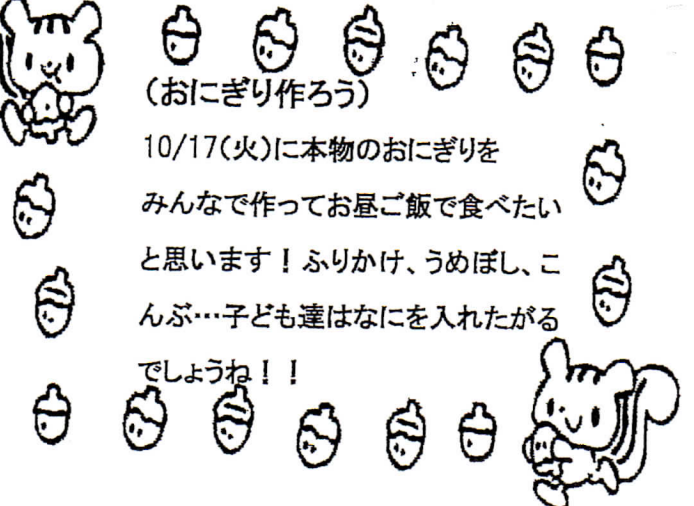 (おにぎり作ろう)
10/17(火)に本物のおにぎりを
みんなで作ってお昼ご飯で食べたい
と思います！ふりかけ、うめぼし、こ
んぶ…子ども達はなにを入れたがる
でしょうね！！